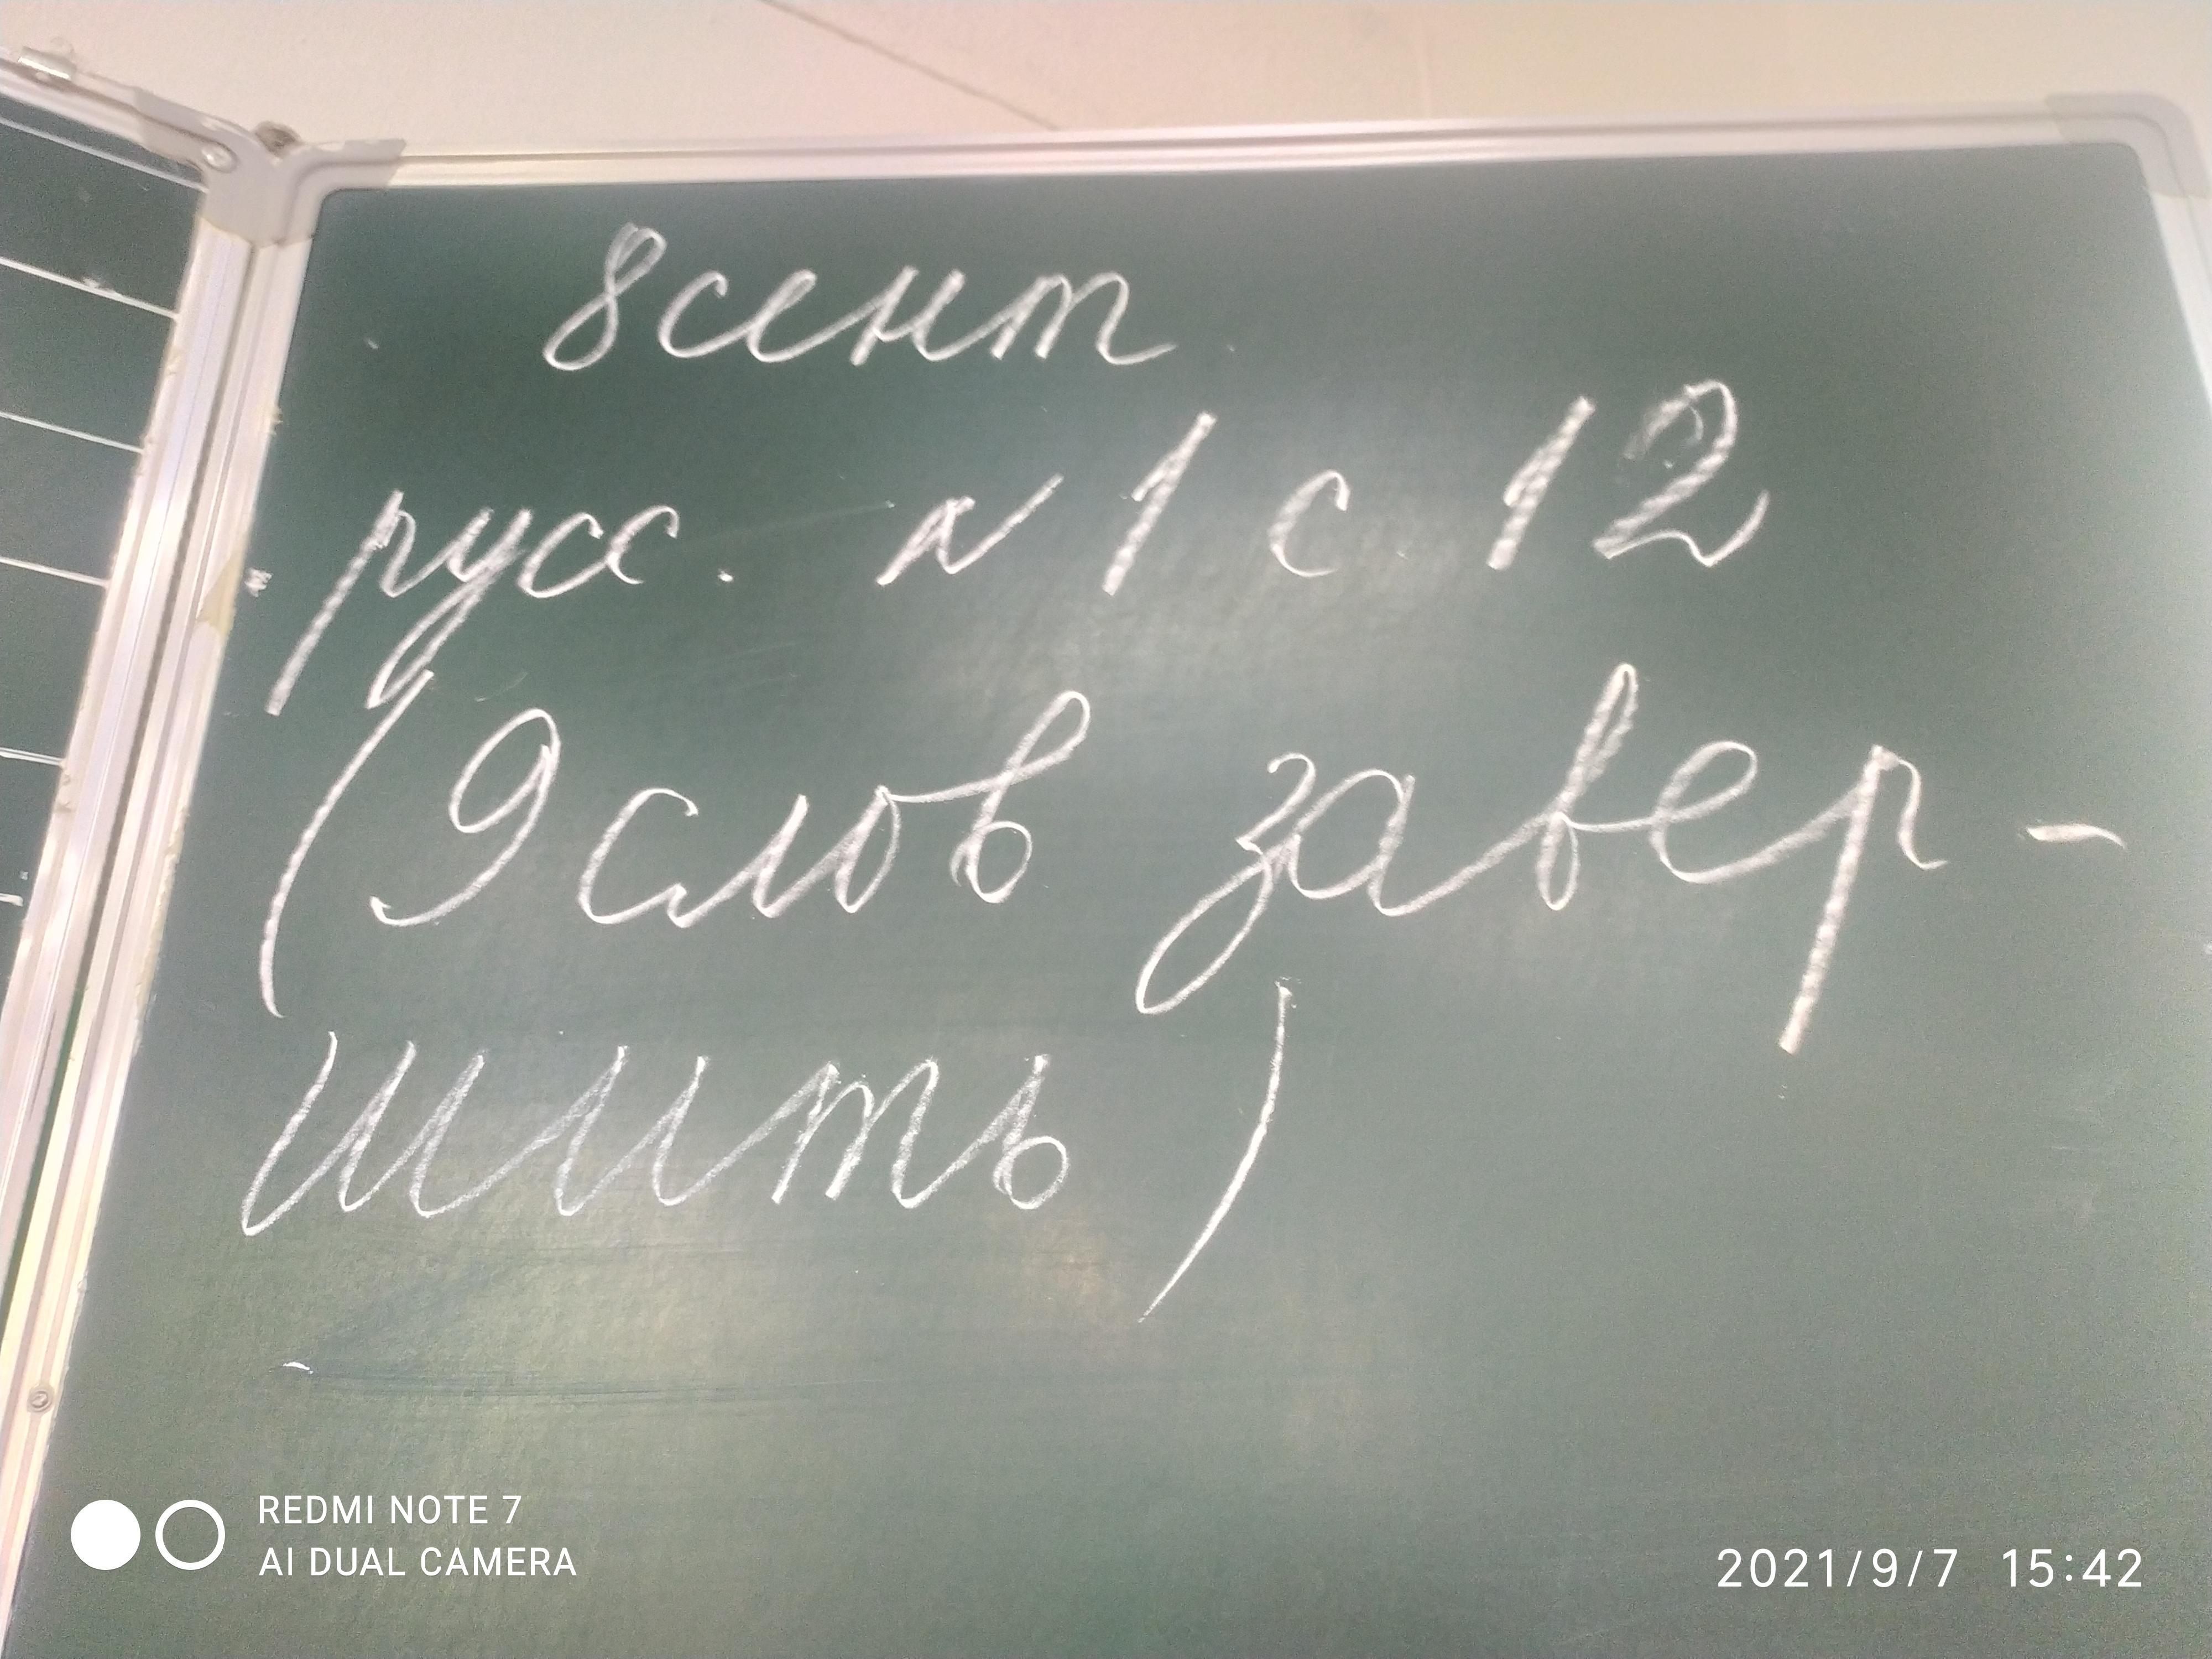 8 сент
русс. № 1 с 12
(9 слов завер-
шить)
REDMI NOTE 7
AI DUAL CAMERA
2021/9/7 15:42